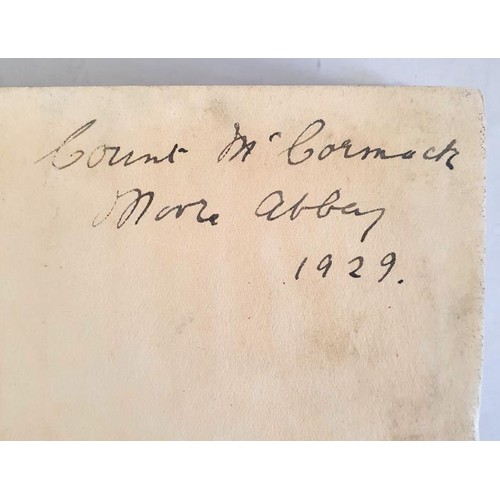 Count McCormack
Moore Abbey
1929.